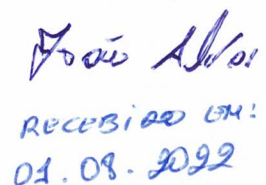 João Alves
RECEBIDO EM:
01.08.2022